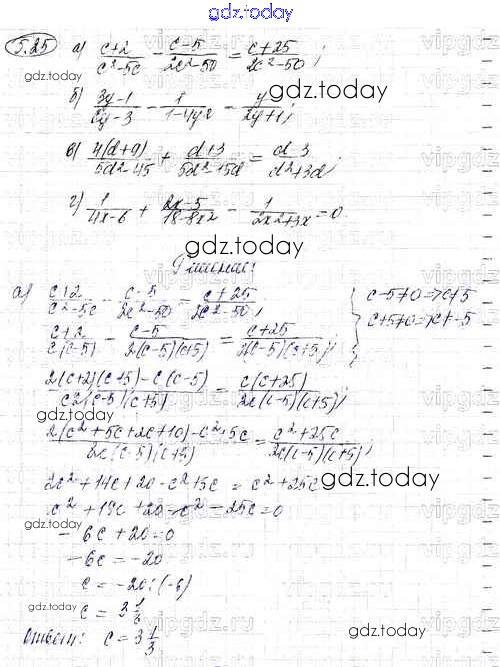 5.25 а) (c+2)/(c²-5c) - (c-5)/(2c²-50) = (c+25)/(2c²-50);
gdz.today
б) (3y-1)/(2y-3) - 1/(1-4y²) - y/(2y+1);
gdz.today
в) 4(d+9)/(5d²-45) + (d+3)/(5d²-15d) = (d-3)/(d²+3d);
г) 1/(4x-6) + (2x-5)/(18-8x²) - 1/(2x²+3x) = 0
gdz.today
Решение:
а) (c+2)/(c²-5c) - (c-5)/(2c²-50) = (c+25)/(2c²-50); { c-5≠0 => c≠5
(c+2)/(c(c-5)) - (c-5)/(2(c-5)(c+5)) = (c+25)/(2(c-5)(c+5)); c+5≠0 => c≠-5
(2(c+2)(c+5) - c(c-5))/(c2(c-5)(c+5)) = c(c+25)/(2c(c-5)(c+5));
gdz.today
(2(c²+5c+2c+10) - c²+5c)/(2c(c-5)(c+5)) = (c²+25c)/(2c(c-5)(c+5));
2c²+14c+20-c²+5c = c²+25c
c²+19c+20-c²-25c=0
gdz.today
-6c+20=0
-6c=-20
c=-20:(-6)
c=3 1/3
Ответ: c=3 1/3
gdz.today